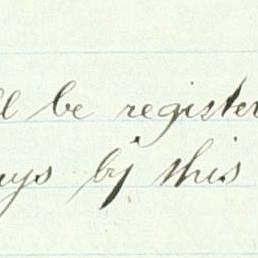 ll be register
ys by this